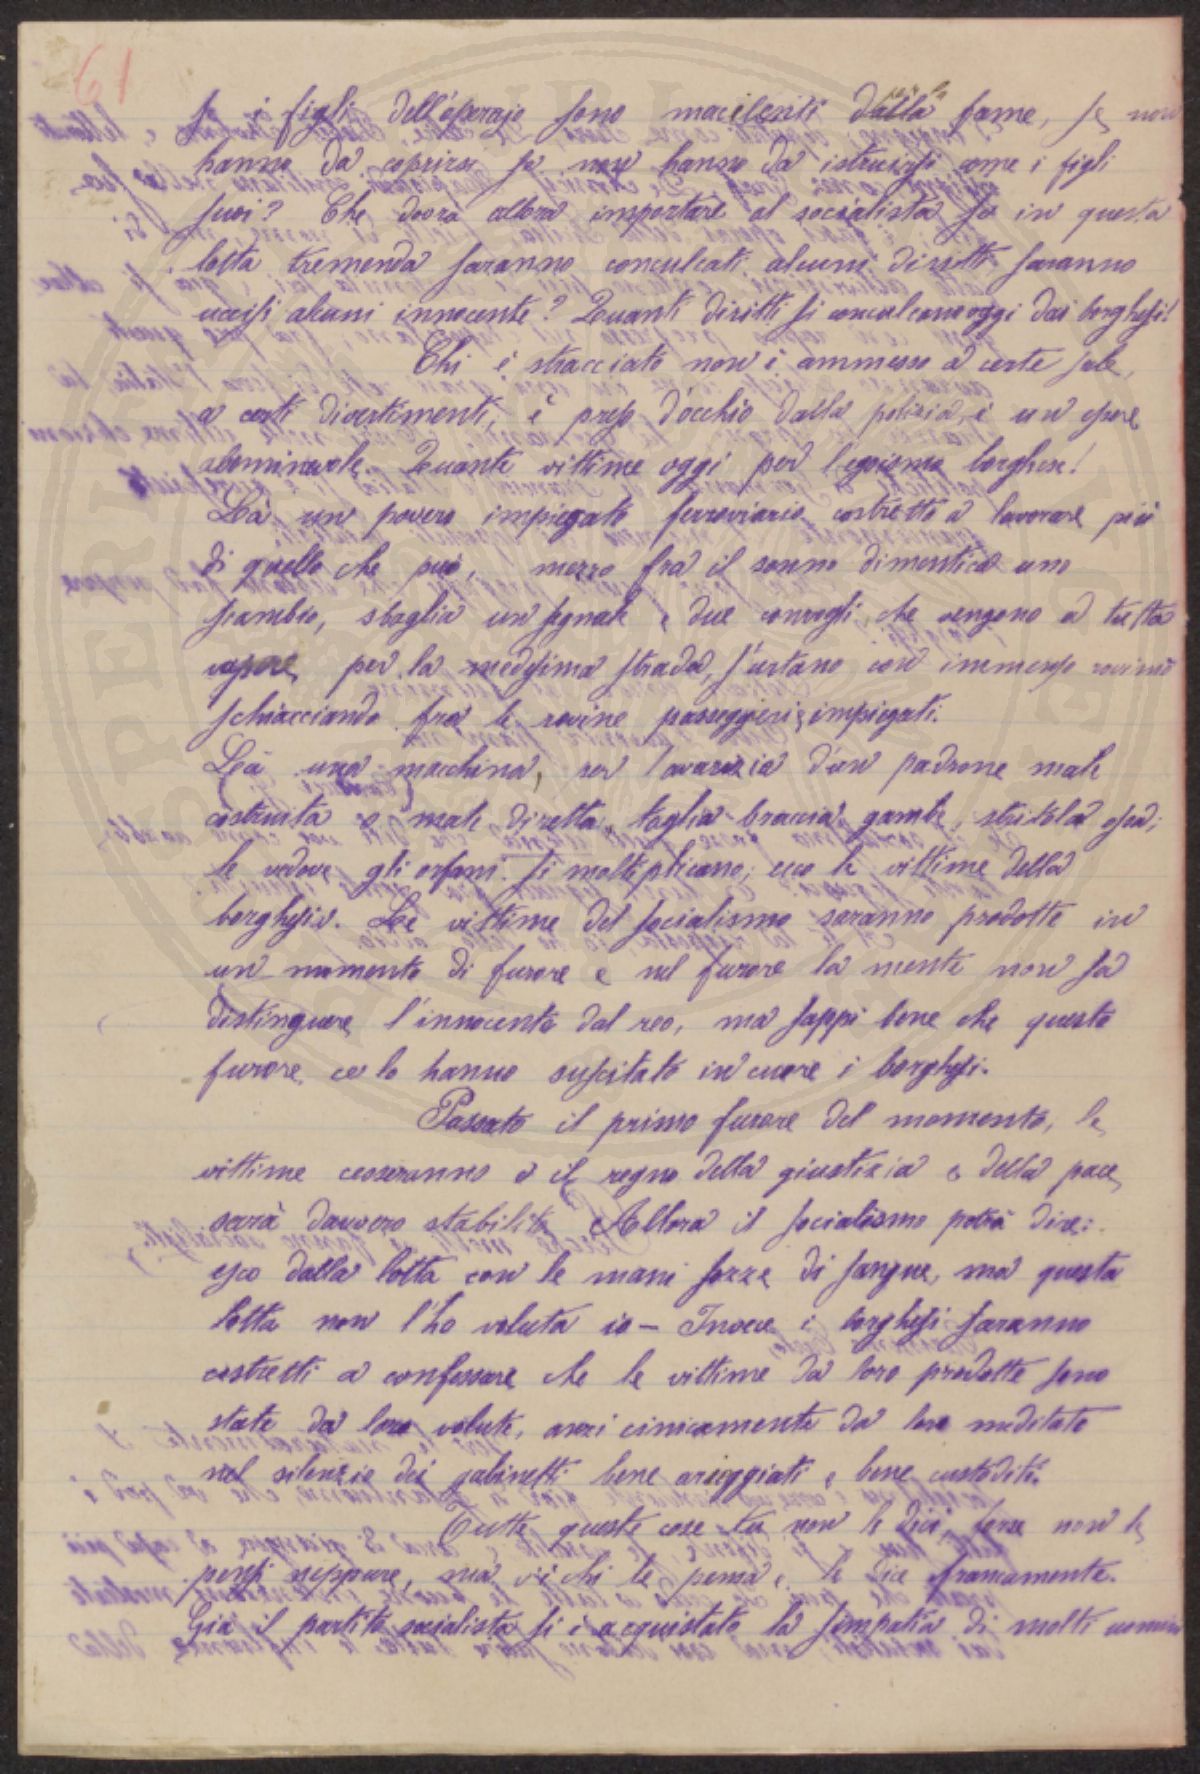 61
se i figli dell'operajo sono macilenti dalla fame, se non
hanno da coprirsi se non hanno da istruirsi come i figli
suoi? Che dovrà allora importare al socialista se in questa
lotta tremenda saranno conculcati alcuni diritti saranno
uccisi alcuni innocente? Quanti diritti si conculcano oggi dai borghesi!
Chi è stracciato non è ammesso a certe sale,
a certi divertimenti, è preso d'occhio dalla polizia, è un essere
abominevole. Quante vittime oggi per l'egoismo borghese!
Là un povero impiegato ferroviario costretto a lavorare più
di quello che può, mezzo fra il sonno dimentica uno
scambio, sbaglia un segnale e due convogli che vengono a tutto
vapore per la medesima strada, s'urtano con immenso rovinio
schiacciando fra le rovine passeggieri e impiegati.
Là una macchina, per l'avarizia d'un padrone male
costruita o male diretta, taglia braccia gambe, stritola ossa;
le vedove gli orfani si moltiplicano; ecco le vittime della
borghesia. Le vittime del socialismo saranno prodotte in
un momento di furore e nel furore la mente non sa
distinguere l'innocente dal reo, ma sappi bene che questo
furore ce lo hanno suscitato in cuore i borghesi.
Passato il primo furore del momento, le
vittime cesseranno e il regno della giustizia e della pace
sarà davvero stabilito Allora il socialismo potrà dire:
esco dalla lotta con le mani sozze di sangue, ma questa
lotta non l'ho voluta io – Invece i borghesi saranno
costretti a confessare che le vittime da loro prodotte sono
state da loro volute, anzi cinicamente da loro meditate
nel silenzio dei gabinetti bene arieggiati e bene custoditi.
Tutte queste cose tu non le dici, forse non le
pensi neppure, ma vi chi le pensa e le dice francamente.
Già il partito socialista si è acquistato la simpatia di molti uomini